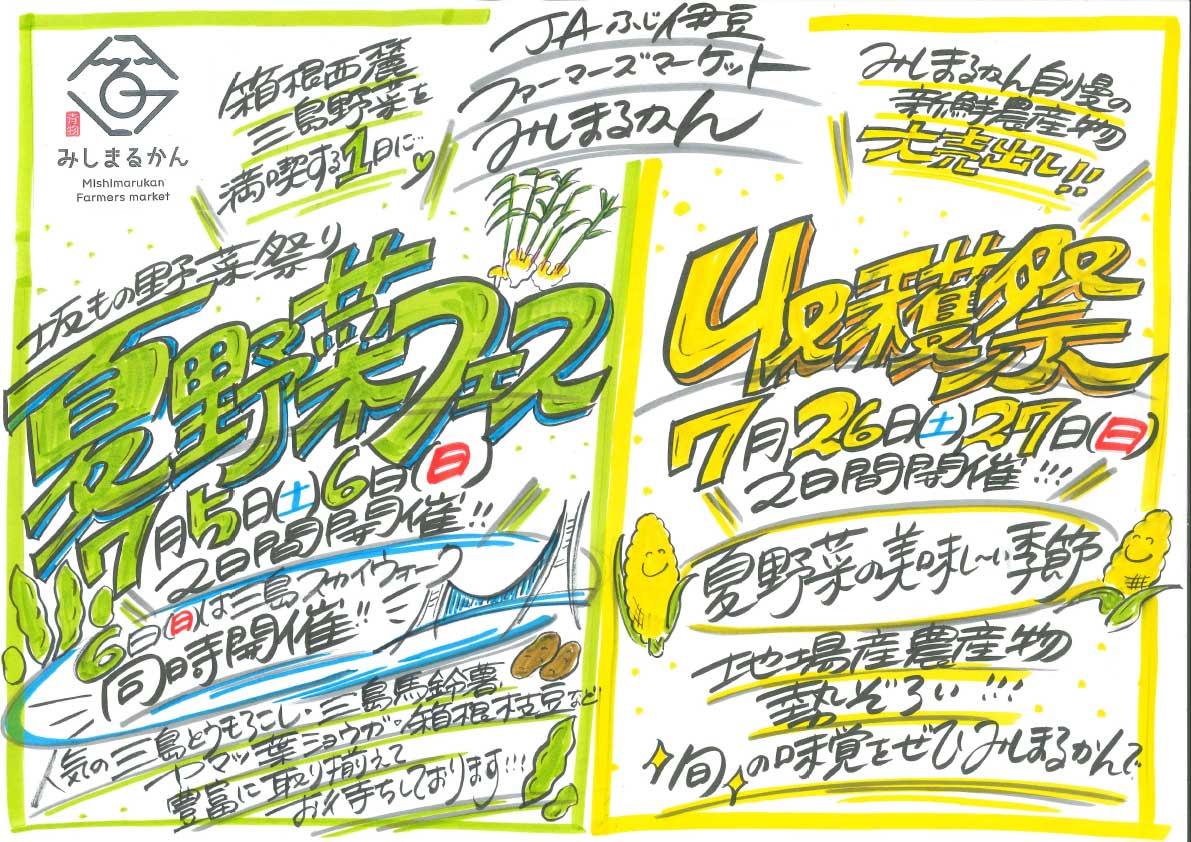 青物
みしまるかん
Mishimarukan
Farmers market
箱根西麓
三島野菜を
満喫する1日に
JAふじ伊豆
ファーマーズマーケット
みしまるかん
坂もの野菜祭り
夏野菜フェス
7月5日(土)6日(日)
2日間開催!!
6日(日)は三島スカイウォーク
同時開催!!
人気の三島とうもろこし・三島馬鈴薯
トマッ葉ショウガ・箱根枝豆など
豊富に取り揃えて
お待ちしております!!!
みしまるかん自慢の
新鮮農産物
大売出し!!
収穫祭
7月26日(土)27日(日)
2日間開催!!!
夏野菜の美味し〜い季節
地場産農産物
勢ぞろい!!!
旬の味覚をぜひみしまるかんで